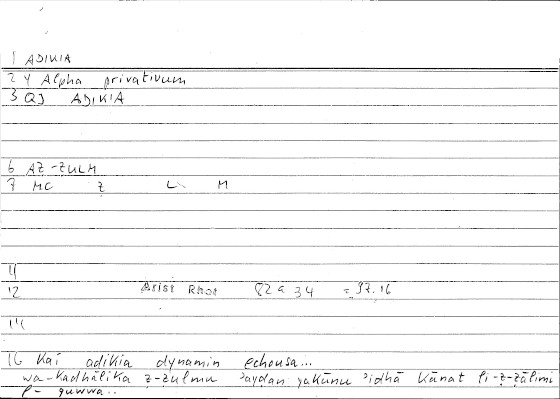 1 ADIKIA
2 Y Alpha privativum
3 QJ ADIKIA
6 AZ-ZULM
7 MC Z L M
11
12 Arist Rhet 82 a 34 = 97.16
14
16 Kai adikia dynamin echousa...
wa-kadhālika ẓ-ẓulmu ʾayḍan yakūnu ʾidhā kānat li-ẓ-ẓālimi
l-quwwa..